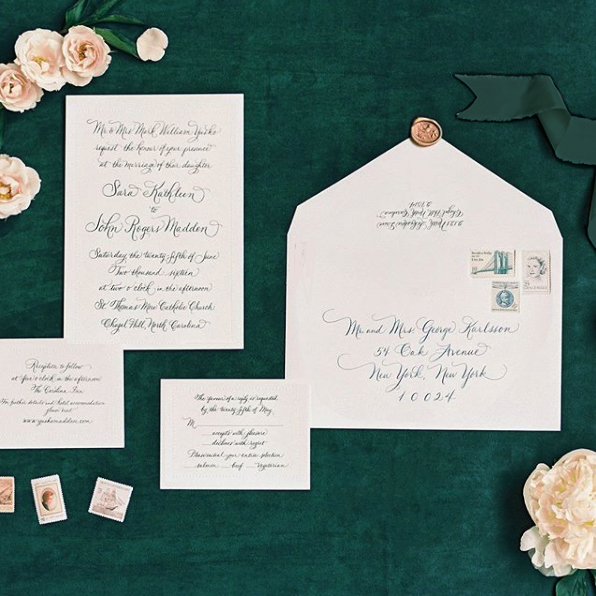 Mr. & Mrs. Mark William Yusko
request the honour of your presence
at the marriage of their daughter
Sara Kathleen
to
John Rogers Madden
Saturday the twenty-fifth of June
Two thousand sixteen
at two o'clock in the afternoon
St. Thomas More Catholic Church
Chapel Hill, North Carolina
Reception to follow
at five o'clock in the afternoon
The Carolina Inn
For further details and hotel accommodation
please visit
www.yuskomadden.com
The favour of a reply is requested
by the twenty-fifth of May
M
accepts with pleasure
declines with regret
Please initial your entrée selection
salmon beef vegetarian
Chapel Hill, North Carolina
27514
Mr. and Mrs. George Karlsson
54 Oak Avenue
New York, New York
10024